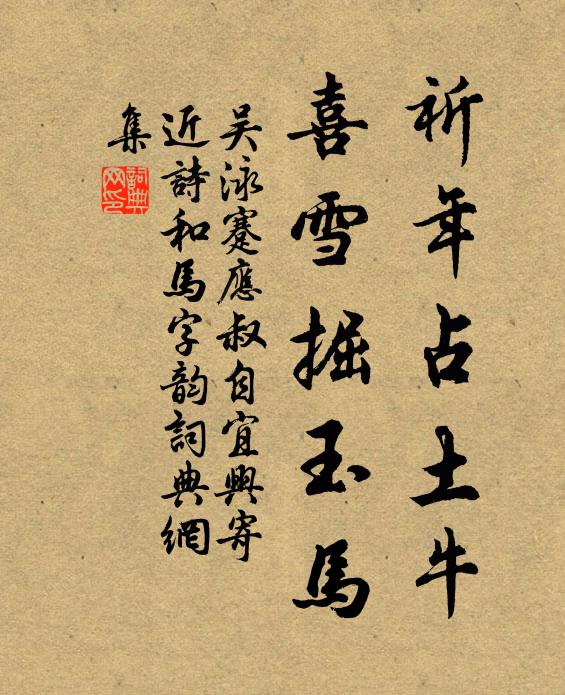 祈年占土牛
喜雪掘玉馬
吴泳蹇應叔自宜興寄
近詩和馬字韵詞典網
集
詞典
网印